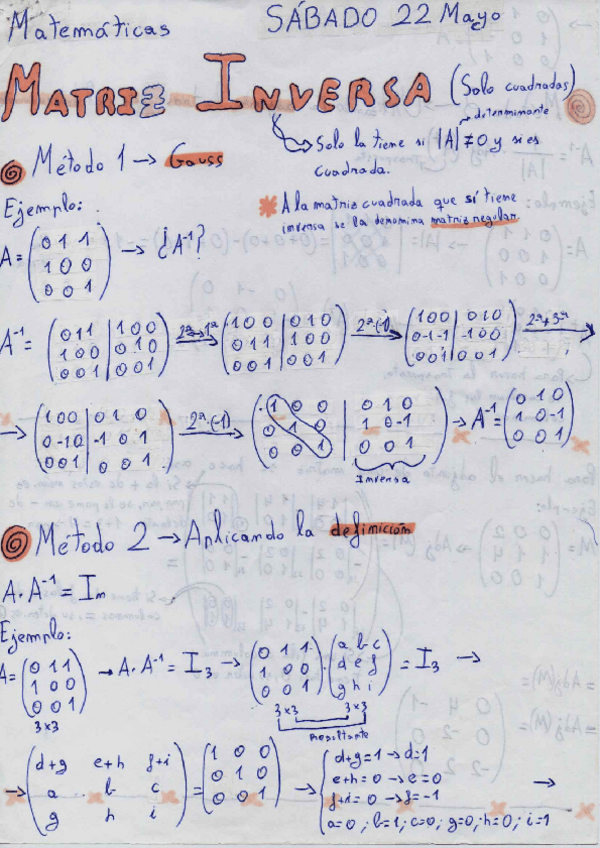 Matemáticas SÁBADO 22 Mayo
MATRIZ INVERSA (Solo cuadradas)
determinante
Solo la tiene si |A| ≠ 0 y si es
cuadrada.
Método 1 → Gauss
* A la matriz cuadrada que sí tiene
inversa se la denomina matriz regular.
Ejemplo:
A = (0 1 1 / 1 0 0 / 0 0 1) → ¿A⁻¹?
A⁻¹ = (0 1 1 | 1 0 0 / 1 0 0 | 0 1 0 / 0 0 1 | 0 0 1) 2ª→1ª → (1 0 0 | 0 1 0 / 0 1 1 | 1 0 0 / 0 0 1 | 0 0 1) 2ª·(-1) → (1 0 0 | 0 1 0 / 0 -1 -1 | -1 0 0 / 0 0 1 | 0 0 1) 2ª+3ª →
→ (1 0 0 | 0 1 0 / 0 -1 0 | -1 0 1 / 0 0 1 | 0 0 1) 2ª·(-1) → (1 0 0 | 0 1 0 / 0 1 0 | 1 0 -1 / 0 0 1 | 0 0 1) → A⁻¹ = (0 1 0 / 1 0 -1 / 0 0 1)
Inversa
Método 2 → Aplicando la definición
A · A⁻¹ = Im
Ejemplo:
A = (0 1 1 / 1 0 0 / 0 0 1) → A · A⁻¹ = I3 → (0 1 1 / 1 0 0 / 0 0 1) · (a b c / d e f / g h i) = I3 →
3×3 3×3 3×3
Resultante
→ (d+g e+h f+i / a b c / g h i) = (1 0 0 / 0 1 0 / 0 0 1) → { d+g=1 → d=1
e+h=0 → e=0 →
f+i=0 → f=-1
a=0 ; b=1; c=0; g=0; h=0; i=1